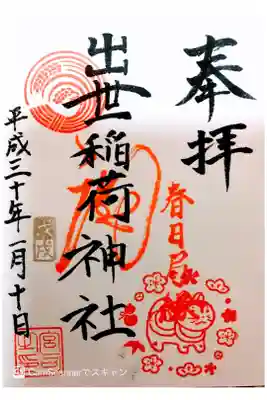 奉拝
春日局
出世稲荷神社
戊戌
平成三十年一月十日
CamScannerでスキャン